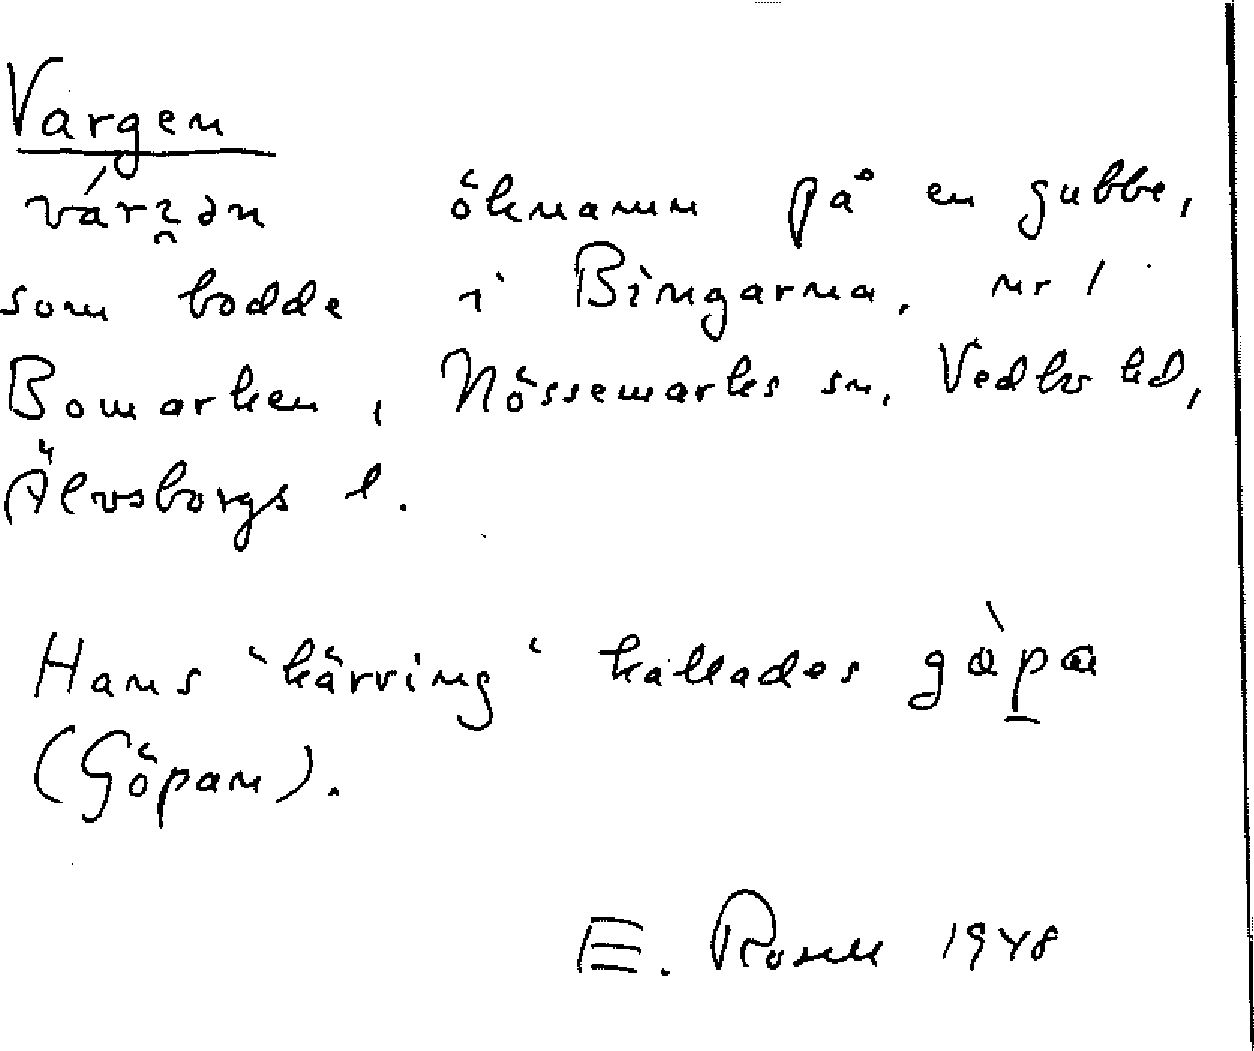 Vargen
öknamn på en gubbe,
som bodde i Bingarna, nr 1
Bomarken, Nössemarks sn, Vedbo hd,
Älvsborgs l.
Hans "kärring" kallades
(Göpan).
E. Rosell 1948